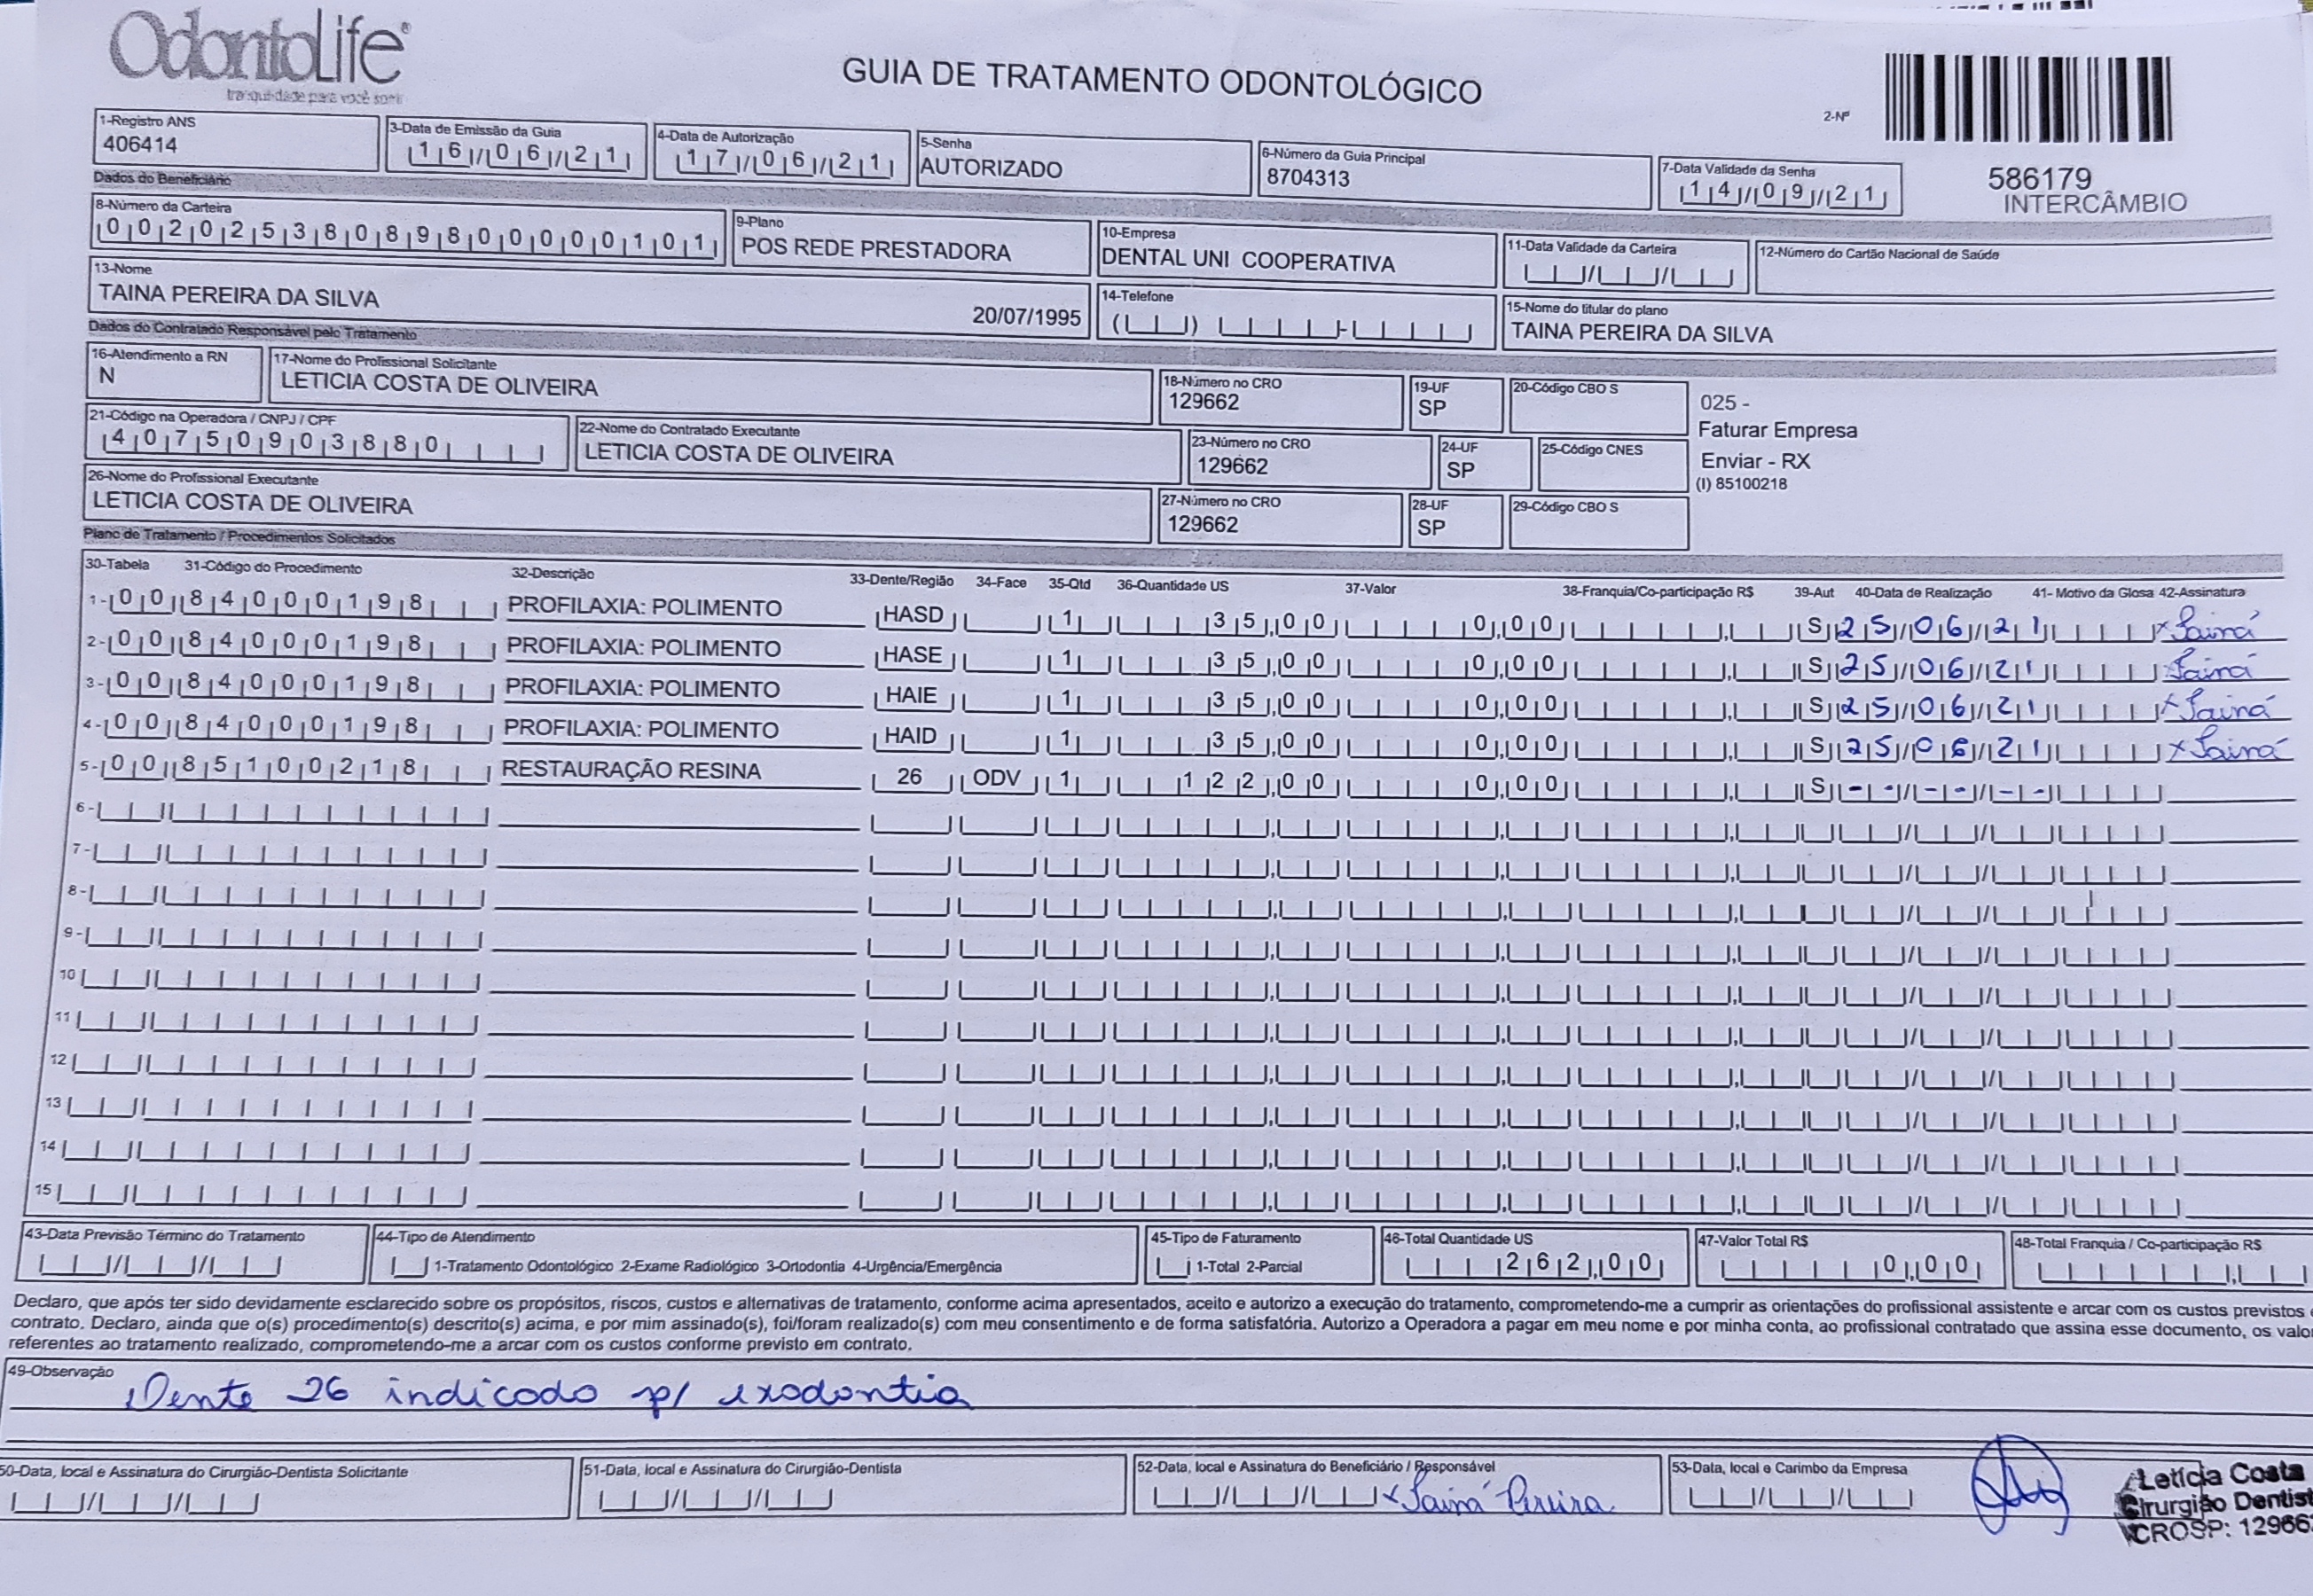 OdontoLife®
tranquilidade para você sorrir
GUIA DE TRATAMENTO ODONTOLÓGICO
2-Nº
586179
INTERCÂMBIO
1-Registro ANS
406414
3-Data de Emissão da Guia
16/06/21
4-Data de Autorização
17/06/21
5-Senha
AUTORIZADO
6-Número da Guia Principal
8704313
7-Data Validade da Senha
14/09/21
Dados do Beneficiário
8-Número da Carteira
00202538089800000101
9-Plano
POS REDE PRESTADORA
10-Empresa
DENTAL UNI COOPERATIVA
11-Data Validade da Carteira
12-Número do Cartão Nacional de Saúde
13-Nome
TAINA PEREIRA DA SILVA 20/07/1995
14-Telefone
15-Nome do titular do plano
TAINA PEREIRA DA SILVA
Dados do Contratado Responsável pelo Tratamento
16-Atendimento a RN
N
17-Nome do Profissional Solicitante
LETICIA COSTA DE OLIVEIRA
18-Número no CRO
129662
19-UF
SP
20-Código CBO S
025 -
Faturar Empresa
Enviar - RX
(I) 85100218
21-Código na Operadora / CNPJ / CPF
40750903880
22-Nome do Contratado Executante
LETICIA COSTA DE OLIVEIRA
23-Número no CRO
129662
24-UF
SP
25-Código CNES
26-Nome do Profissional Executante
LETICIA COSTA DE OLIVEIRA
27-Número no CRO
129662
28-UF
SP
29-Código CBO S
Plano de Tratamento / Procedimentos Solicitados
30-Tabela 31-Código do Procedimento 32-Descrição 33-Dente/Região 34-Face 35-Qtd 36-Quantidade US 37-Valor 38-Franquia/Co-participação R$ 39-Aut 40-Data de Realização 41- Motivo da Glosa 42-Assinatura
1- 00 84000198 PROFILAXIA: POLIMENTO HASD 1 35,00 0,00 S 25/06/21 x Tainá
2- 00 84000198 PROFILAXIA: POLIMENTO HASE 1 35,00 0,00 S 25/06/21 Tainá
3- 00 84000198 PROFILAXIA: POLIMENTO HAIE 1 35,00 0,00 S 25/06/21 x Tainá
4- 00 84000198 PROFILAXIA: POLIMENTO HAID 1 35,00 0,00 S 25/06/21 x Tainá
5- 00 85100218 RESTAURAÇÃO RESINA 26 ODV 1 122,00 0,00 S --/--/--
6-
7-
8-
9-
10
11
12
13
14
15
43-Data Previsão Término do Tratamento
44-Tipo de Atendimento
1-Tratamento Odontológico 2-Exame Radiológico 3-Ortodontia 4-Urgência/Emergência
45-Tipo de Faturamento
1-Total 2-Parcial
46-Total Quantidade US
262,00
47-Valor Total R$
0,00
48-Total Franquia / Co-participação R$
Declaro, que após ter sido devidamente esclarecido sobre os propósitos, riscos, custos e alternativas de tratamento, conforme acima apresentados, aceito e autorizo a execução do tratamento, comprometendo-me a cumprir as orientações do profissional assistente e arcar com os custos previstos
contrato. Declaro, ainda que o(s) procedimento(s) descrito(s) acima, e por mim assinado(s), foi/foram realizado(s) com meu consentimento e de forma satisfatória. Autorizo a Operadora a pagar em meu nome e por minha conta, ao profissional contratado que assina esse documento, os valo
referentes ao tratamento realizado, comprometendo-me a arcar com os custos conforme previsto em contrato.
49-Observação
Dente 26 indicado p/ exodontia
50-Data, local e Assinatura do Cirurgião-Dentista Solicitante
51-Data, local e Assinatura do Cirurgião-Dentista
52-Data, local e Assinatura do Beneficiário / Responsável
x Tainá Pereira
53-Data, local e Carimbo da Empresa
Letícia Costa
Cirurgião Dentist
CROSP: 12966